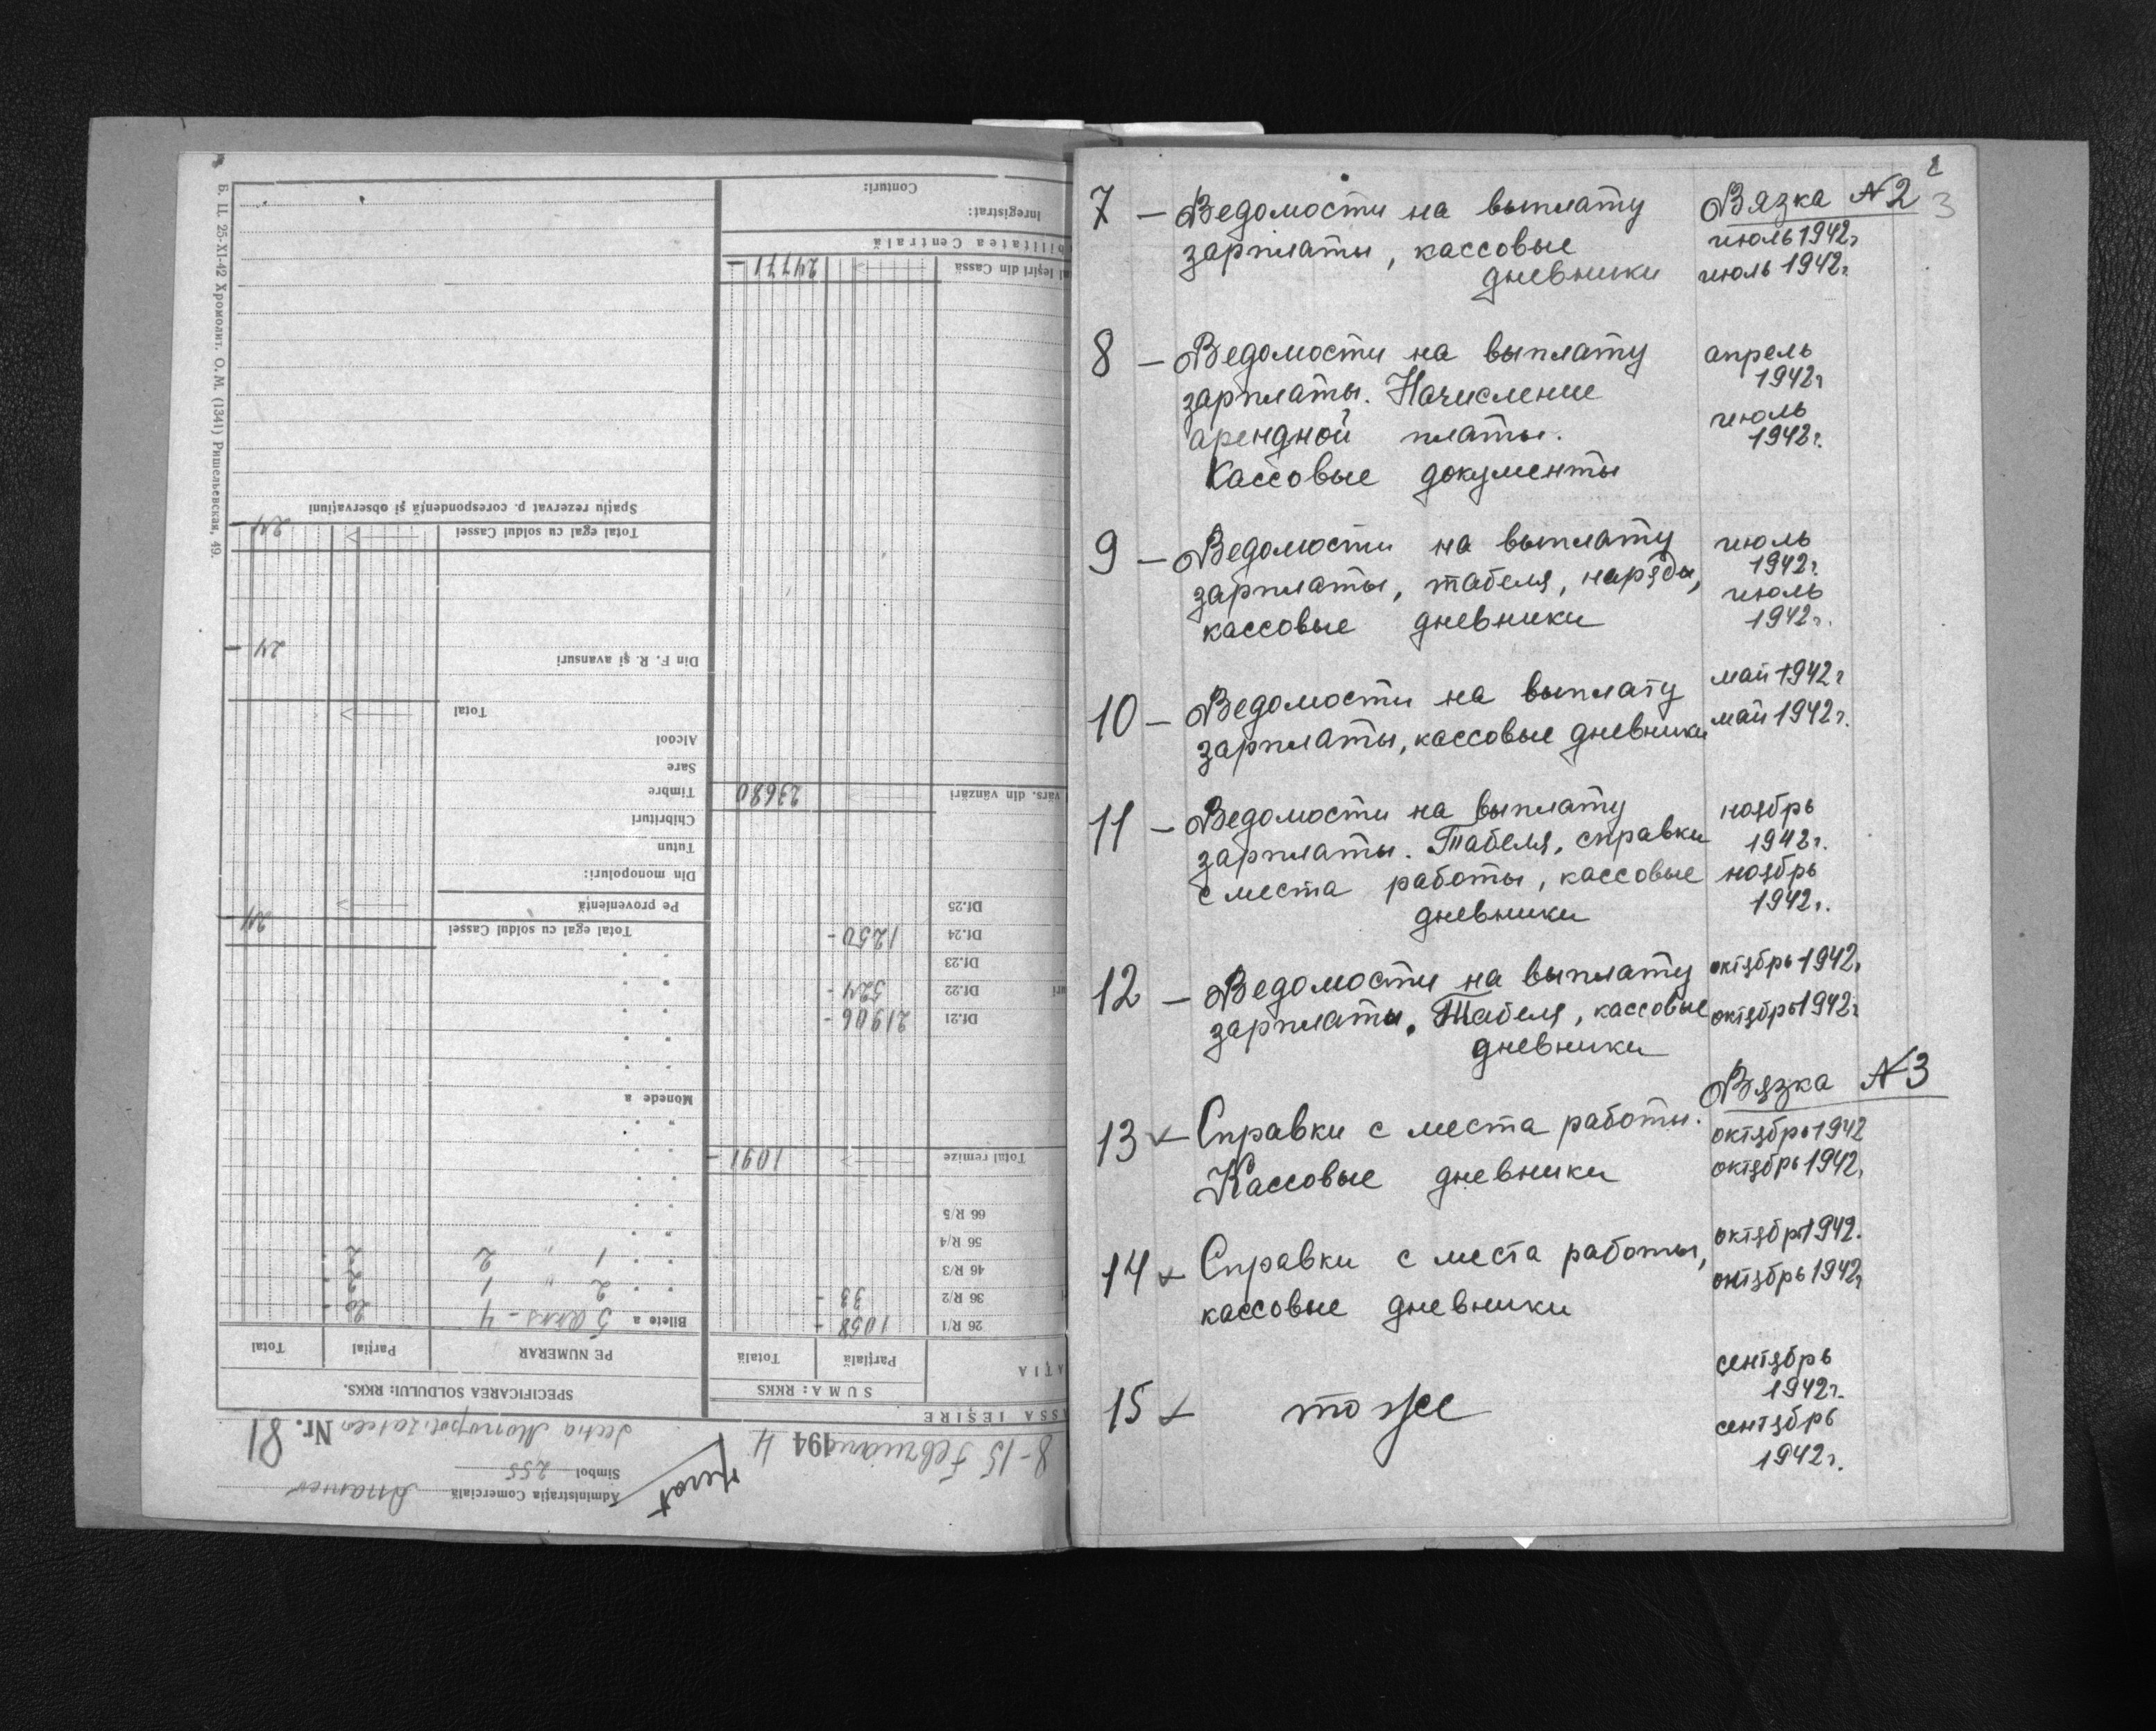 8-15 Februarie 1944
Administrația Comercială Ananiev
Simbol 255
Secția Monopolizateed Nr. 81
ASSA IEȘIRE
SUMA: RKKS
Parțială Totală
26 R/1 1058 -
36 R/2 33 -
46 R/3
56 R/4
66 R/5
Total remize 1091 -
Df.21 21906 -
Df.22 524 -
Df.23
Df.24 1250 -
Df.25
vars. din vânzări 23680
Ieșiri din Cassă 24771 -
Contabilitatea Centrală
Inregistrat:
Conturi:
SPECIFICAREA SOLDULUI: RKKS.
PE NUMERAR Parțial Total
Bilete a 5 RKKS - 4 20 -
" " 2 " 1 2 -
" " 1 " 2 2 -
Monede a
Total egal cu soldul Cassei 24 -
Pe proveniență
Din monopoluri:
Tutun
Chibrituri
Timbre
Sare
Alcool
Total
Din F. R. și avansuri 24 -
Total egal cu soldul Cassei 24 -
Spațiu rezervat p. corespondență și observațiuni
Б. Ц. 25-XI-42 Хромолит. О. М. (1341) Ришельевская, 49.
3
Вязка N2
7 — Ведомости на выплату июль 1942г
зарплаты, кассовые июль 1942г.
дневники
8 — Ведомости на выплату апрель
зарплаты. Начисление 1942г
арендной платы. июль
Кассовые документы 1942г.
9 — Ведомости на выплату июль
зарплаты, табеля, наряды, 1942г.
кассовые дневники июль
1942г.
10 — Ведомости на выплату май 1942г
зарплаты, кассовые дневники май 1942г.
11 — Ведомости на выплату ноябрь
зарплаты. Табеля, справки 1942г.
с места работы, кассовые ноябрь
дневники 1942г.
12 — Ведомости на выплату октябрь 1942г
зарплаты. Табеля, кассовые октябрь 1942г
дневники
Вязка N3
13 — Справки с места работы. октябрь 1942
Кассовые дневники октябрь 1942г
14 Справки с места работы, октябрь 1942.
кассовые дневники октябрь 1942г
15 то же сентябрь
1942г.
сентябрь
1942г.